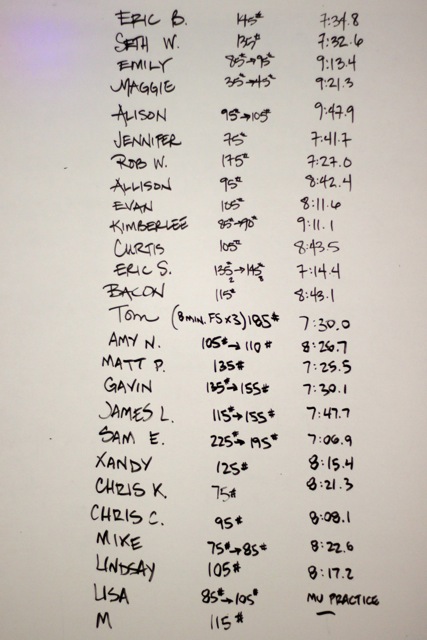 ERIC B. 145# 7:34.8
SETH W. 135# 7:32.6
EMILY 85#→95# 9:13.4
MAGGIE 35#→45# 9:21.3
ALISON 95#→105# 9:47.9
JENNIFER 75# 7:41.7
ROB W. 175# 7:27.0
ALLISON 95# 8:42.4
EVAN 105# 8:11.6
KIMBERLEE 85#→90# 9:11.1
CURTIS 105# 8:43.5
ERIC S. 135#→145# 7:14.4
2 3
BACON 115# 8:43.1
Tom (8 MIN. FS x3) 185# 7:30.0
AMY N. 105#→110# 8:26.7
MATT P. 135# 7:25.5
GAVIN 135#→155# 7:30.1
JAMES L. 115#→155# 7:47.7
SAM E. 225#→195# 7:06.9
XANDY 125# 8:15.4
CHRIS K. 75# 8:21.3
CHRIS C. 95# 8:08.1
MIKE 75#→85# 8:22.6
LINDSAY 105# 8:17.2
LISA 85#→105# MU PRACTICE
M 115# —